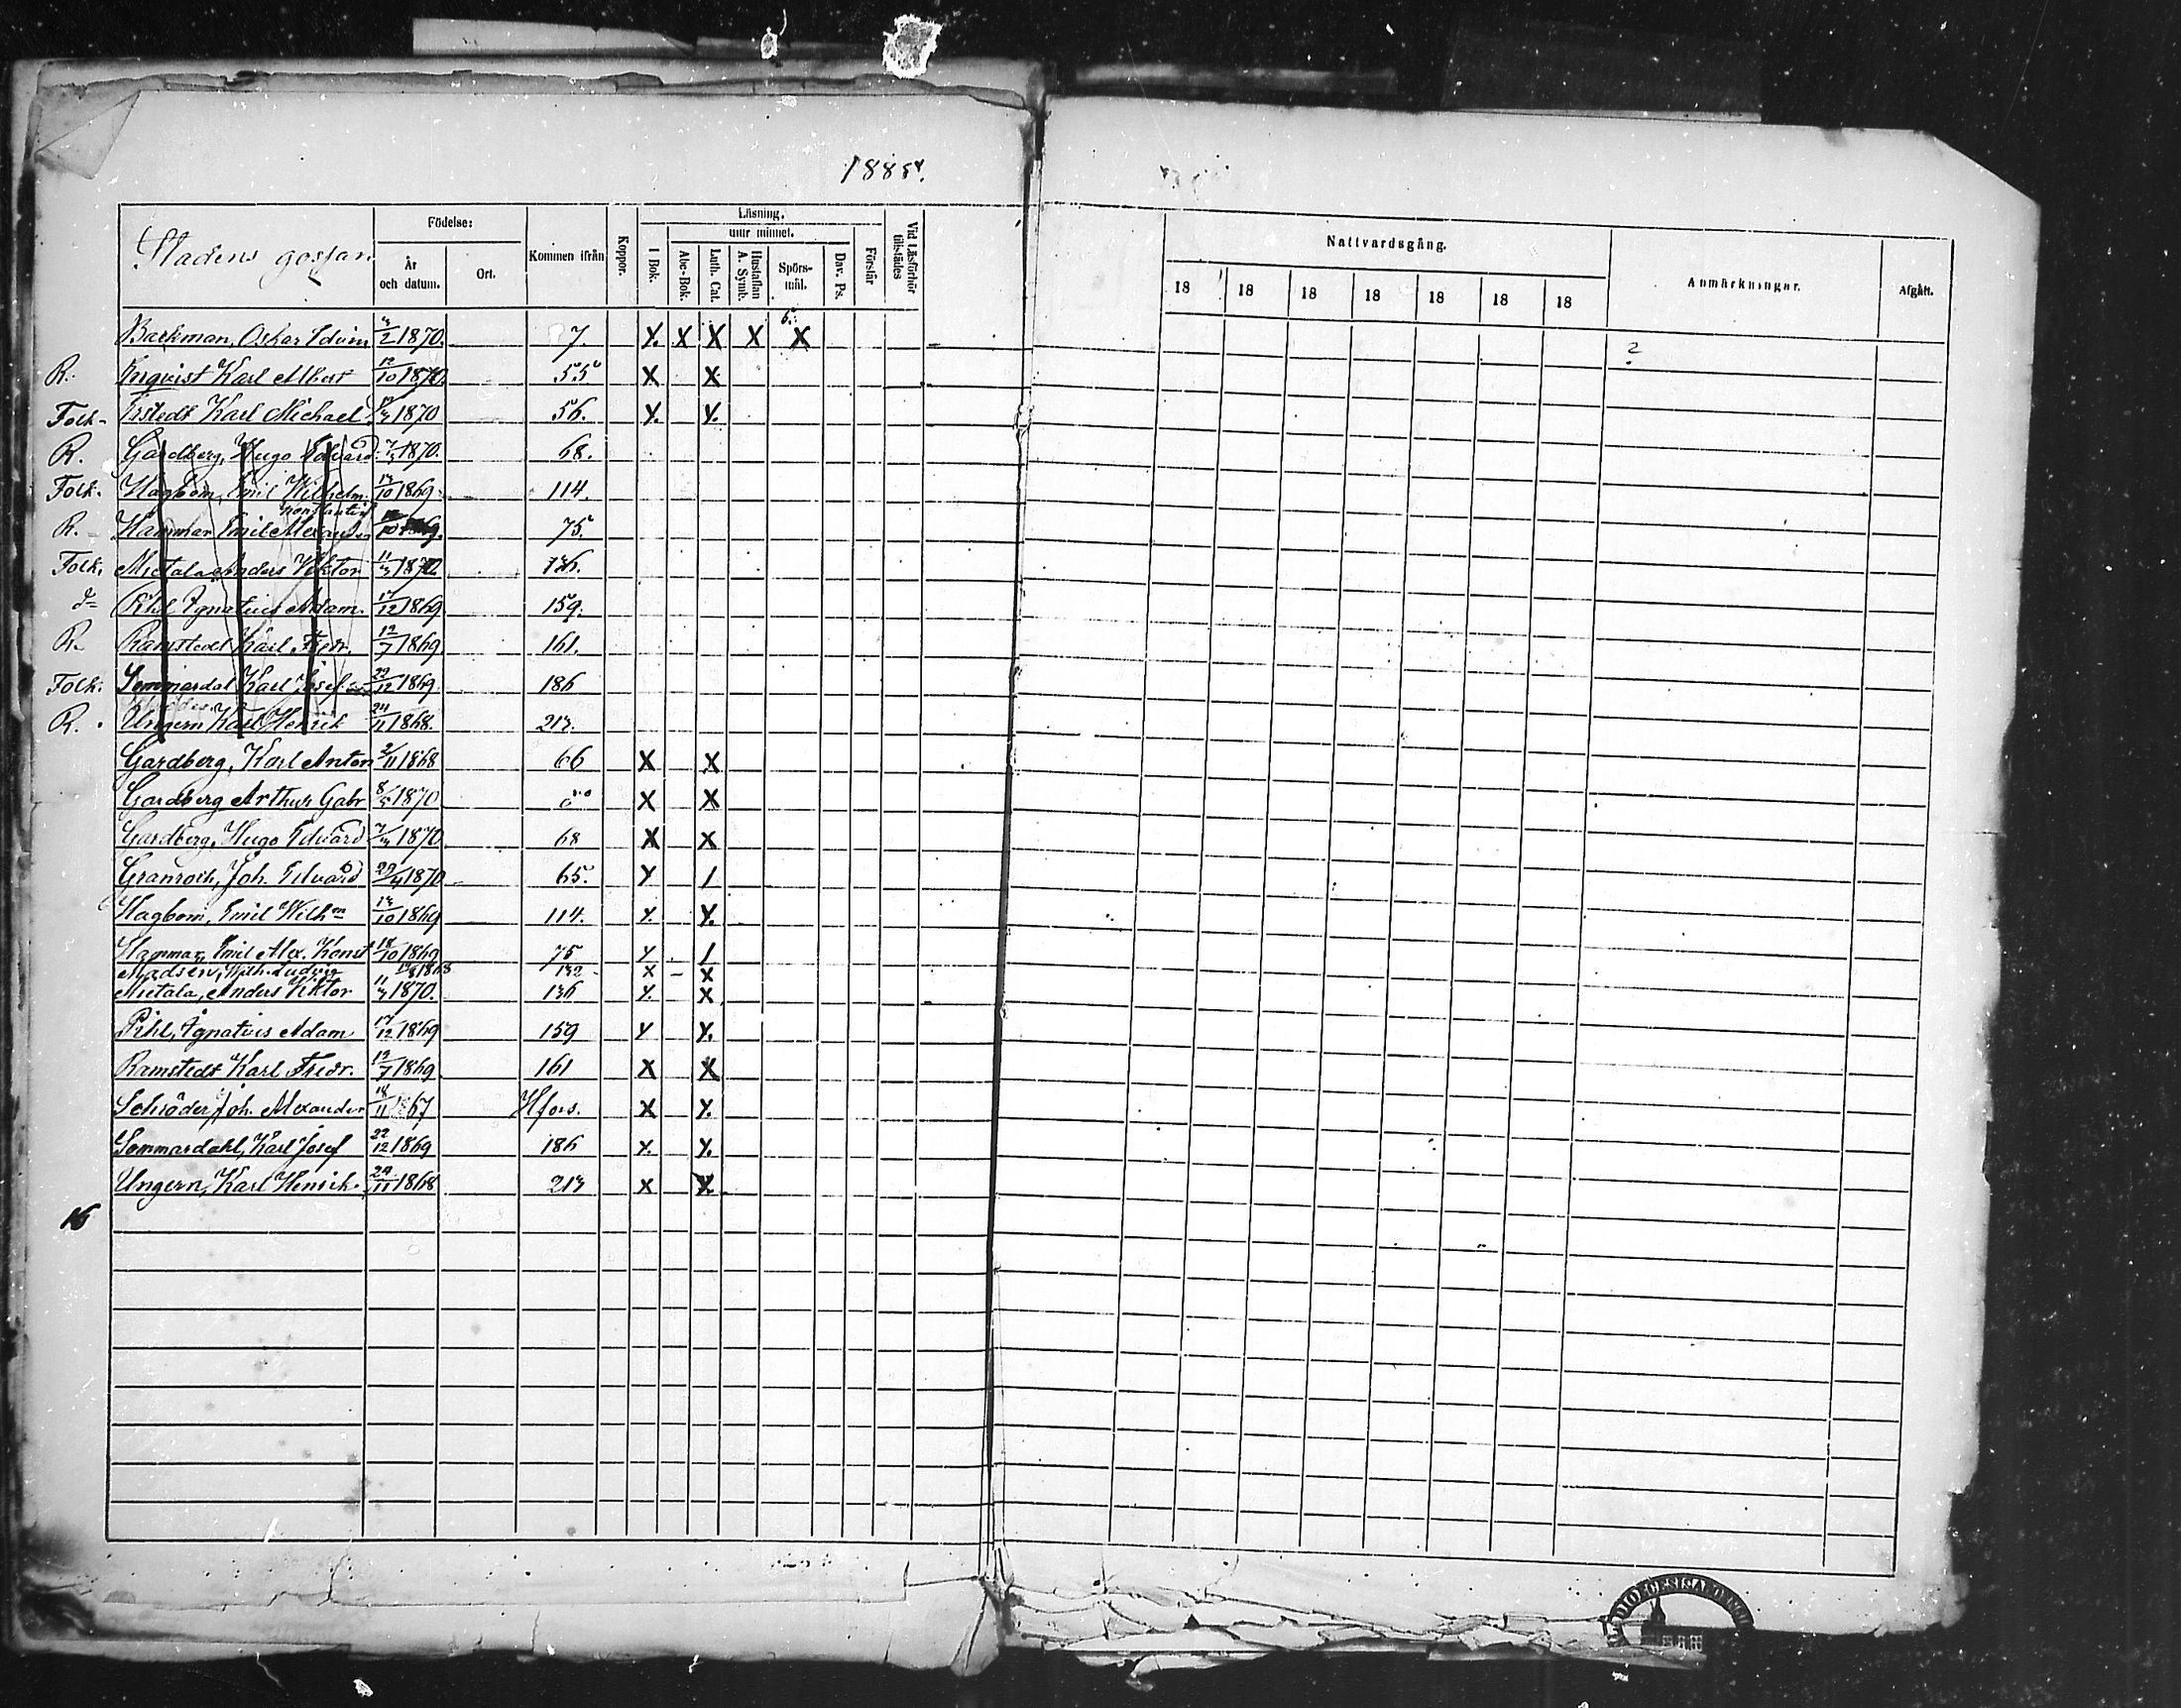 1885.
Stadens gossar
Födelse:
År och datum.
Ort.
Kommen ifrån
Koppor.
Läsning.
utur minnet.
I Bok.
Abc-Bok.
Luth. Cat.
Hustaflan A. Symb.
Spörsmål.
Dav. Ps.
Förstår
Vid Läsförhör tillstädes
Nattvardsgång.
18 18 18 18 18 18 18
Anmärkningar.
Afgått.
Backman, Oskar Edvin /2 1870. 7 X X X X X
R. Karl Albert 12/10 1870. 55 X X
Folk. Karl Michael 1870 56. X X
R. Gardberg, Hugo Edvard 1870. 68.
Folk. Hagbom, Emil Wilhelm 13/10 1869. 114.
R. Hammar Emil Alexander 75.
Folk. Mietala Anders Viktor 11/3 1870. 136.
Pihl Ignatius Adam. 17/12 1869 159.
R. Ramstedt Karl Fredr. 12/7 1869 161.
Folk. Sommardal Karl Josef 22/12 1869. 186
R. Ungern Karl Henrik 24/11 1868. 213.
Gardberg, Karl Anton 2/11 1868 66 X X
Gardberg Arthur Gabr 8/5 1870 X X
Gardberg, Hugo Edvard 7/3 1870 68 X X
Granroth, Joh. Edvard 29/4 1870 65. X /
Hagbom, Emil Wilhm 13/10 1869 114. X X
Hammar, Emil Alex. Konst 18/10 1869 75 X /
Madsen, Wilh. Ludvig 1868 132 X – X
Mietala, Anders Viktor 11/3 1870. 136 X X
Pihl, Ignatius Adam 17/12 1869 159 X X
Ramstedt Karl Fredr. 12/7 1869 161 X X
Schröder, Joh. Alexander 18/11 1867 Hfors. X X
Sommardahl, Karl Josef 22/12 1869 186 X X
Ungern, Karl Henrik. 24/11 1868 213 X X
16